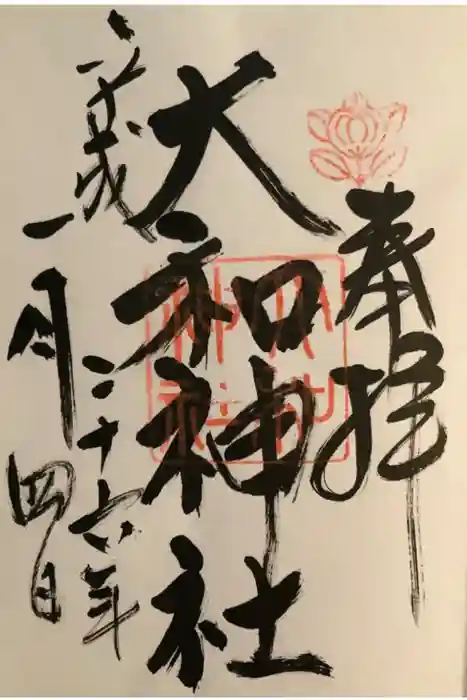 奉拝
大和神社
平成二十六年
一月四日